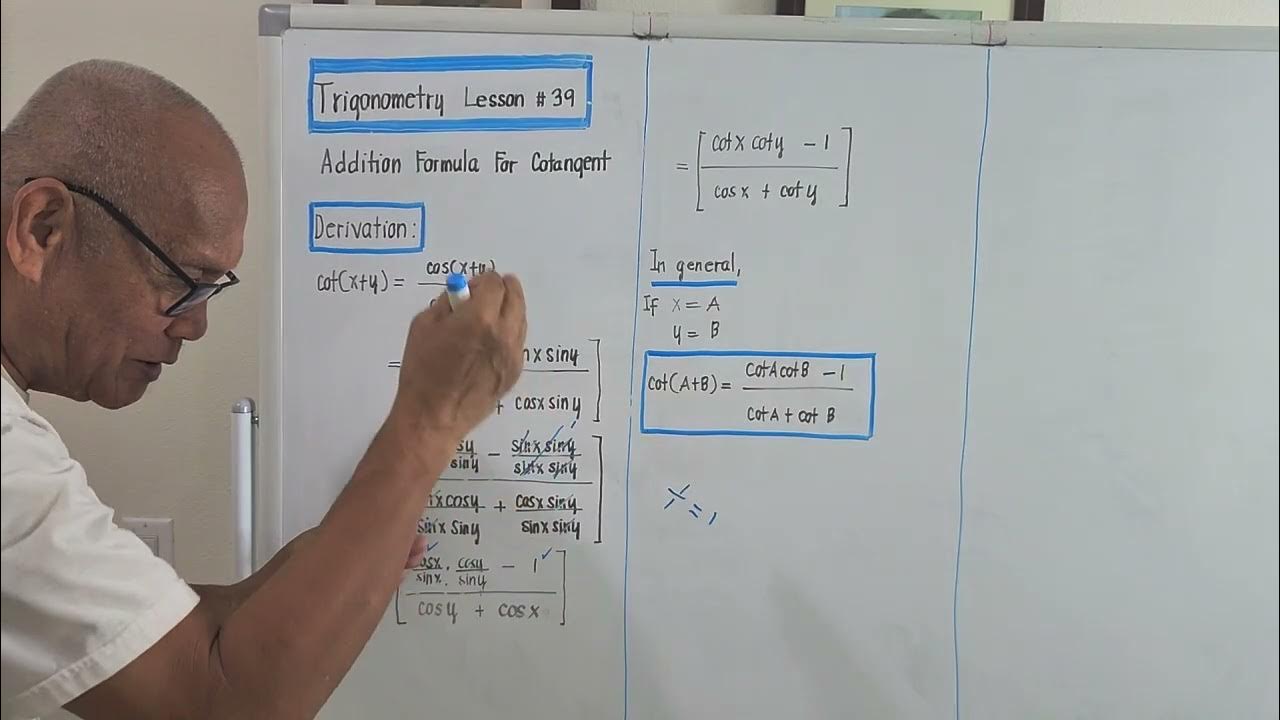 Trigonometry Lesson # 39
Addition Formula For Cotangent
Derivation:
cot(x+y) = cos(x+y)
=
x siny
+ cosx sin y
siny − sinx siny
sinx siny
cosy + cosx siny
sinx Siny sinx siny
cosx . cosy − 1
sinx . siny
cosy + cosx
= [ cotx coty − 1
cosx + coty ]
In general,
If x = A
y = B
cot(A+B) = cotAcotB − 1
cotA + cot B